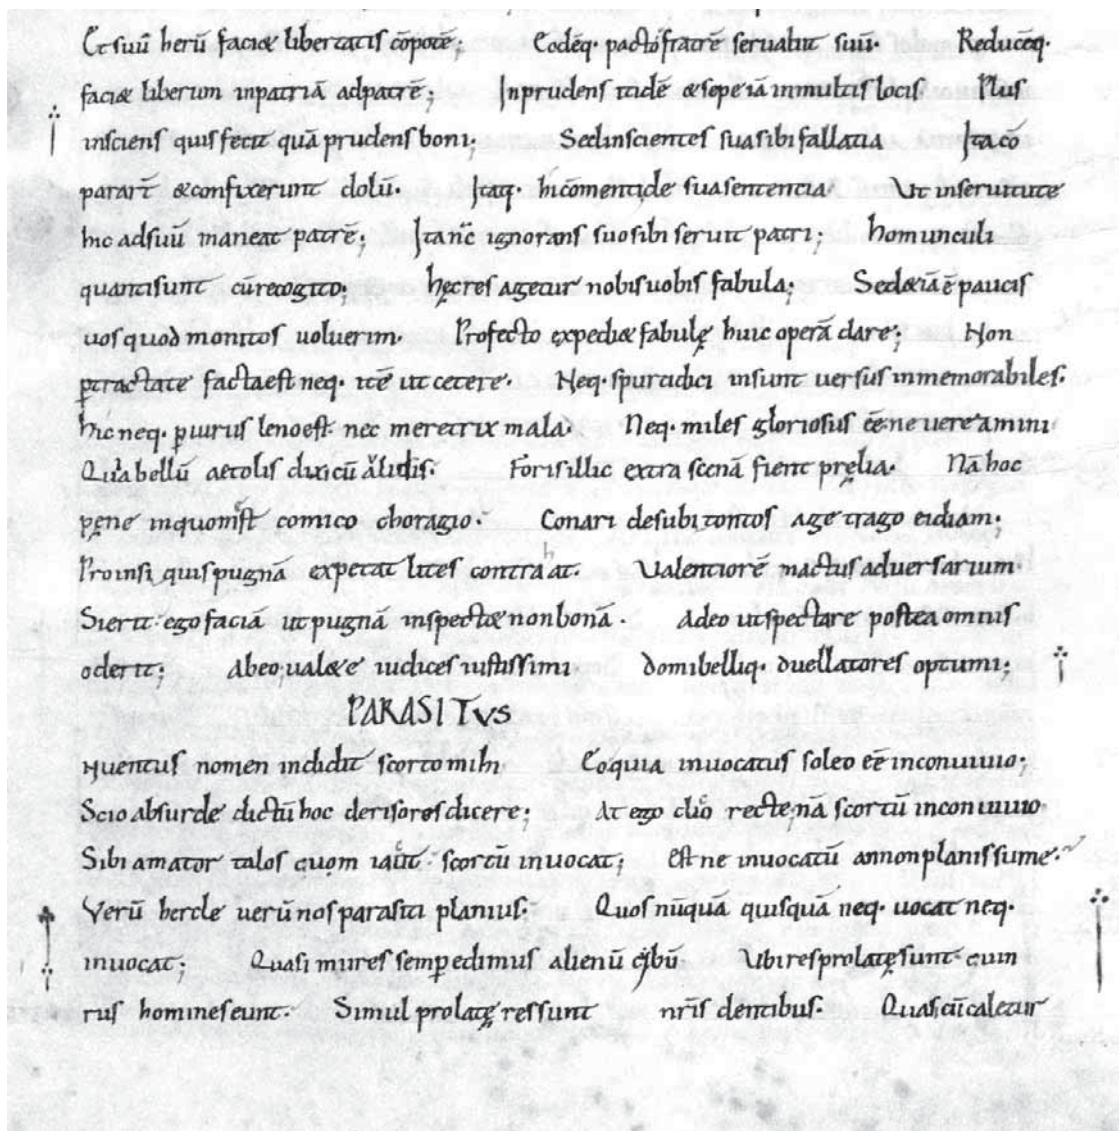 Et suū herū faciæ libertatis cōpotē; Eodēq· pacto fratrē seruabit suū· Reducēq·
faciæ liberum inpatriā adpatrē; Inprudens itidē æsope iā inmultis locis Plus
insciens quis fecit quā prudens boni; Sedinscientes suasibi fallatia Ita cō
parar̄t &confixerunt dolū· Itaq· hi cōmenti de suasententia Ut inseruitute
hic adsuū maneat patrē; Ita nc̄ ignorans suo sibi seruit patri; homunculi
quanti sunt cū recogito; hęc res agetur nobis uobis fabula; Sed &iā ē paucis
uos quod monitos uoluerim· Profecto expediæ fabulę huic operā dare; Non
ptractate factaest neq· itē ut cetere· Neq· spurcidici insunt uersus inmemorabiles·
hic neq· piurus lenoest· nec meretrix mala· Neq· miles gloriosus ēē ne uereamini
Quia bellū aetolis dixi cū alidis· Foris illic extra scenā fient pręlia· Nā hoc
pęne inquomst comico choragio· Conari desubi tontos age trago eidiam·
Proinsi quis pugnā expetat lites contra at· Ualentiorē mactus aduersarium·
Sierit· ego faciā ut pugnā inspectæ nonbonā· Adeo ut spectare postea omius
oderit; Abeo; ualæe iudices iustissimi domi belliq· duellatores optumi;
PARASITVS
Iuentus nomen indidit scorto mihi Eo quia inuocatus soleo ēē inconuiuio;
Scio absurde dictū hoc derisores dicere; At ego dio recte; nā scortū inconuiuio
Sibi amator talos quom iaūt· scortū inuocat; est ne inuocatū annon planissume·
Verū hercle uerū nos parasiti planius· Quos nūquā quisquā neq· uocat neq·
inuocat; Quasi mures semp edimus alienū cibū· Ubi res prolatę sunt· cum
rus homines eunt· Simul prolatę res sunt nr̄is dentibus· Quasi cū caletur